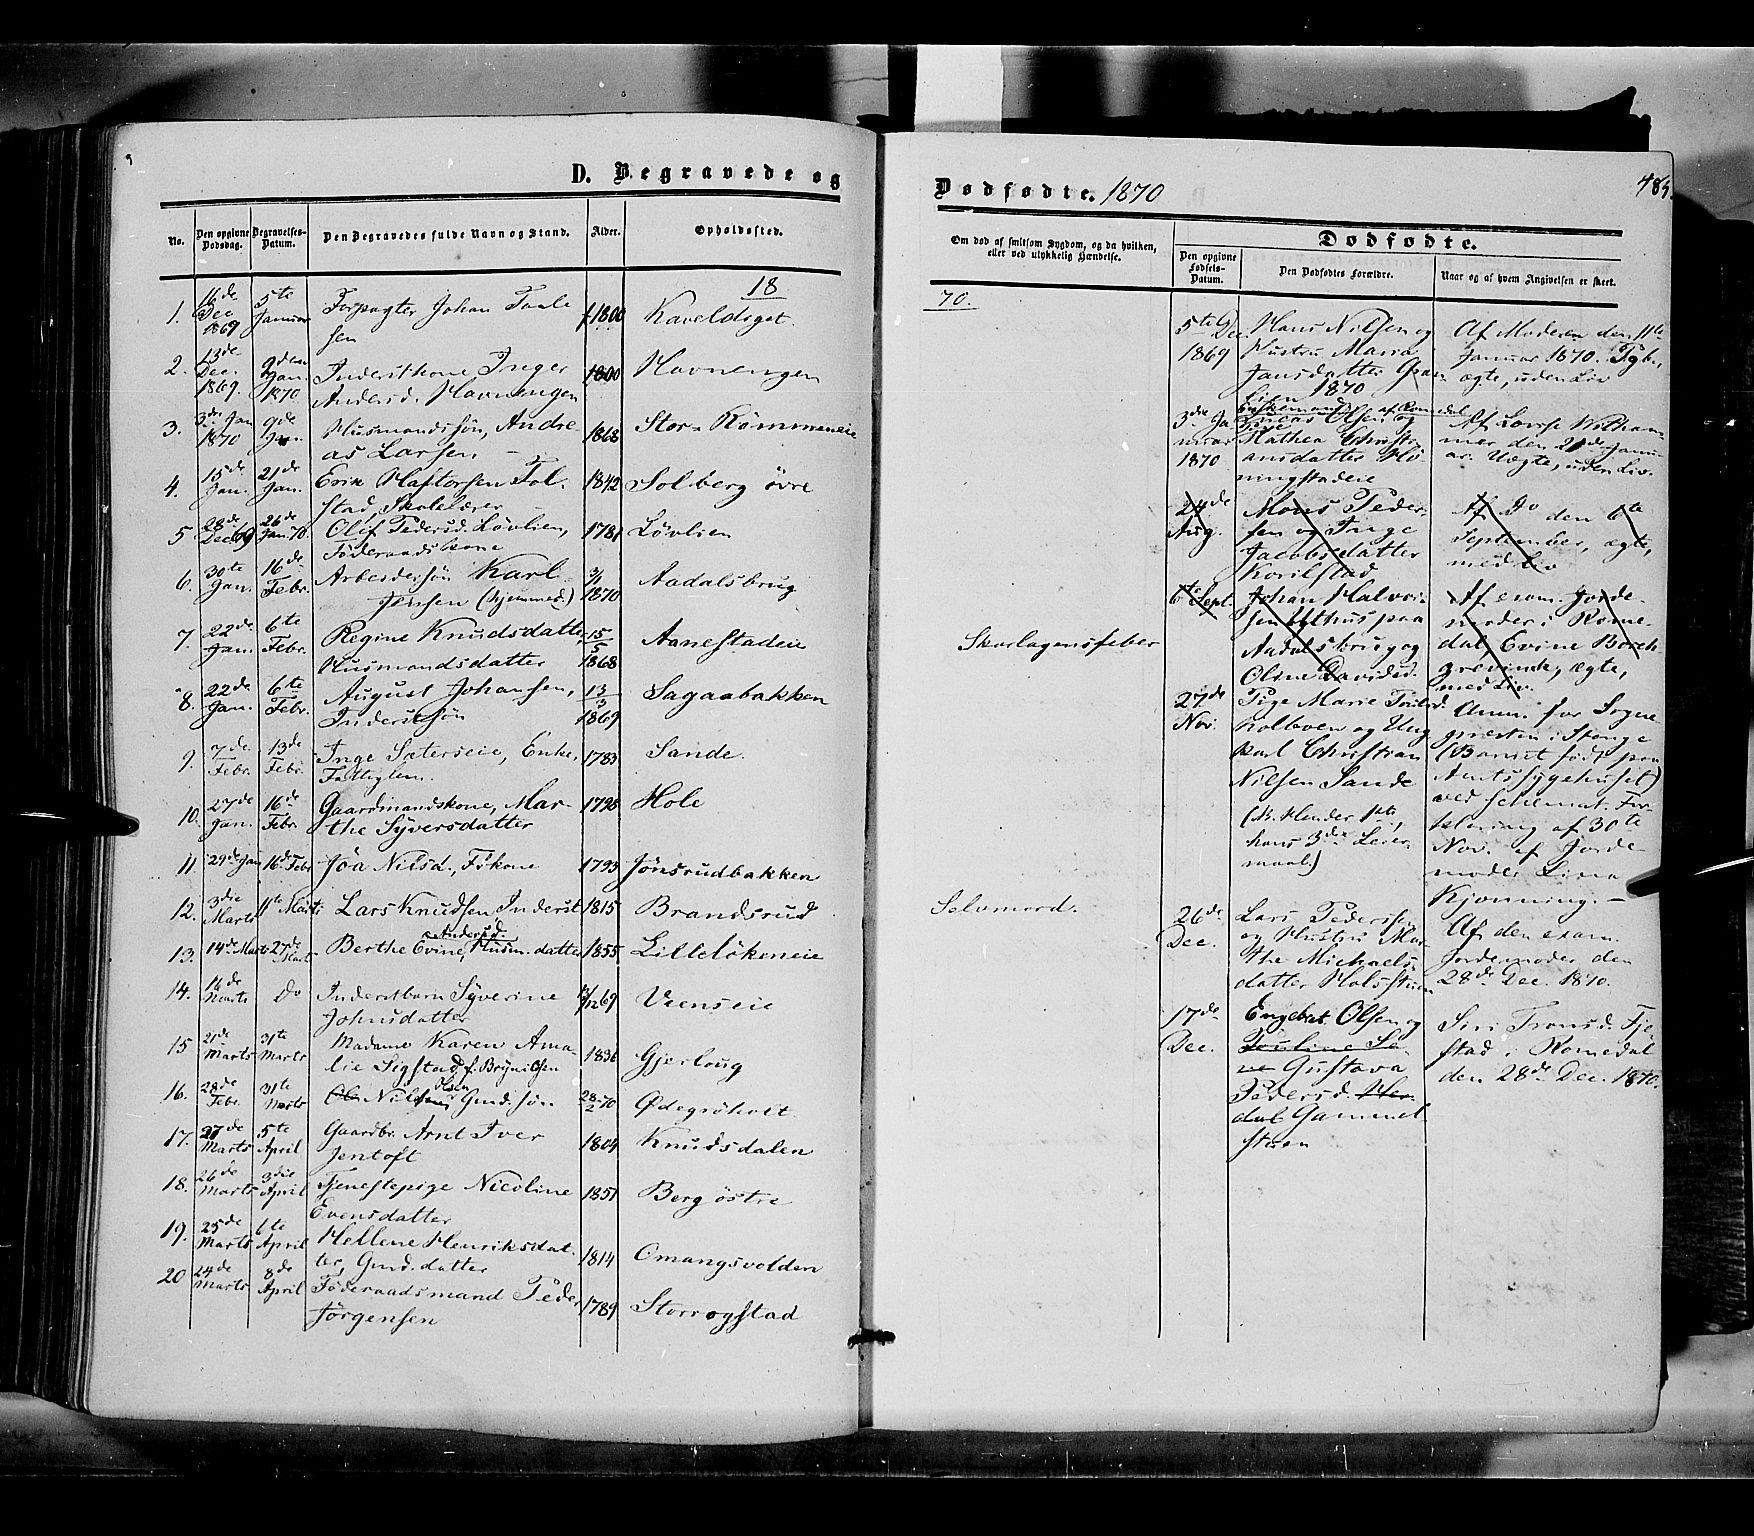 D. Begravede og
No.
Den opgivne Dødsdag.
Begravelses-Datum.
Den Begravedes fulde Navn og Stand.
Alder.
Opholdssted.
18
1. 16de Dec 1869 5te Januar Forpagter Johan Taale
sen 1800 Kaveldiget.
2. 13de Dec. 1869. Jan. 1870 Inderstkone Inger
Andersd. Havnengen 1800 Havnengen
3. 3die Jan 1870 9de Jan Husmandssøn, Andre
as Larsen, 1868 Stor-Rommeneie
4. 15de Jan. 21de Jan. Erik Haftorsen Tol-
stad, Skolelærer 1842 Solberg övre
5 28de Dec 69 26de Jan. 70. Olif Pedersd. Lövlien,
Föderaadskone 1781 Lövlien
6. 30te Jan. 16de Febr. Arbeidersön Karl
Jensen (hjemmed.) 3/1 1870 Aadalsbrug
7. 22de Jan. 6te Febr. Regine Knudsdatter,
Husmandsdatter 15/5 1868 Aanestadeie
8. 22de Jan. 6te Febr. August Johansen,
Inderstsön 13/3 1869 Sagaabakken
9. 7de Febr. 13de Febr. Inge Sæterseie, Enke,
Fattiglem. 1783 Sande.
10. 27de Jan. 16de Febr. Gaardmandskone, Mar-
the Syversdatter Hole
11. 29de Jan 16de Febr Jöa Nilsd., Fökone 1793 Jönsrudbakken
12. 3die Marts 11te Marts Lars Knudsen Inderst 1815 Brandsrud
Andersd.
13. 14de Marts 27de Marts Berthe Evine, Husm. datter 1855 Lillelökeneie
14. 16de Marts Do Inderstbarn Syverine
Johnsdatter 12 69 Veenseie
15 21de Marts 31te Marts Madame Karen Ama-
lie Sigstad f. Brynildsen 1836 Gjerloug
16. 28de Febr. 31te Marts Nils Olsen Gmd. sön 28/2 70 Ødegröholt
17. 27de Marts 5te April Gaardbr. Arnt Iver
Jentoft 1804 Knudsdalen
18. 26de Marts 3die April Tjenestepige Nicoline
Evensdatter 1851 Berg östre
19. 25de Marts 6te April Hellene Henriksdat-
ter, Gmd. datter 1814 Omangsvolden
20 24de Marts 8de April Föderaadsmand Peder
Jörgensen 1789 Storrogstad
Dødfødte. 1870
485.
Om død af smitsom Sygdom, og da hvilken,
eller ved ulykkelig Hændelse.
Dødfødte.
Den opgivne Fødsels-Datum.
Den Dødfødtes Forældre.
Naar og af hvem Angivelsen er skeet.
70.
Skarlagensfeber
Selvmord.
5te Dec. 1869
Hans Nilsen og
Hustru Maria
Jansdatter
Af Moderen den 11te
Januar 1870.
ægte, uden Liv
1870
3die Januar 1870
Enkemand af Romedal
Olsen og
Pige
Mathea Christi-
ansdatter Hö-
ningstadeie
Af Lovise Wilham-
mer den 21de Janu-
ar. Uægte, uden Liv.
24de Aug.
Mons Peder-
sen og Inge
Jacobsdatter
Korilstad
Af Do den 6te
September, ægte,
med Liv
6te Sept.
Johan Halvor-
sen Nythus paa
Aadalsbrug og
Oline Davidsd.
Af exam. Jorde-
moder i Rome-
dal Evine Borch-
grevink, ægte,
med Liv.
27de Nov.
Pige Marie
Kolboen og Ung
karl Christian
Nilsen Sande
(B. Hendes 1ste,
hans 3die Leier-
maal.)
Anm. for Sogne
præsten i Stange
(Barnet födt paa
Amtssygehuset)
ved schemat. For-
klaring af 30te
Nov. af Jorde-
moder Lina
Kjonning. –
26de Dec.
Lars Pedersen
og Hustru Mar-
the Michaels-
datter Holsstuen
Af den exam.
Jordemoder den
28de Dec. 1870.
17de Dec.
Engebret Olsen og
Pouline
Gustava
Pedersd.
Gammel
stuen
Siri Tronsd. Fje-
stad i Romedal
den 28de Dec. 1870.